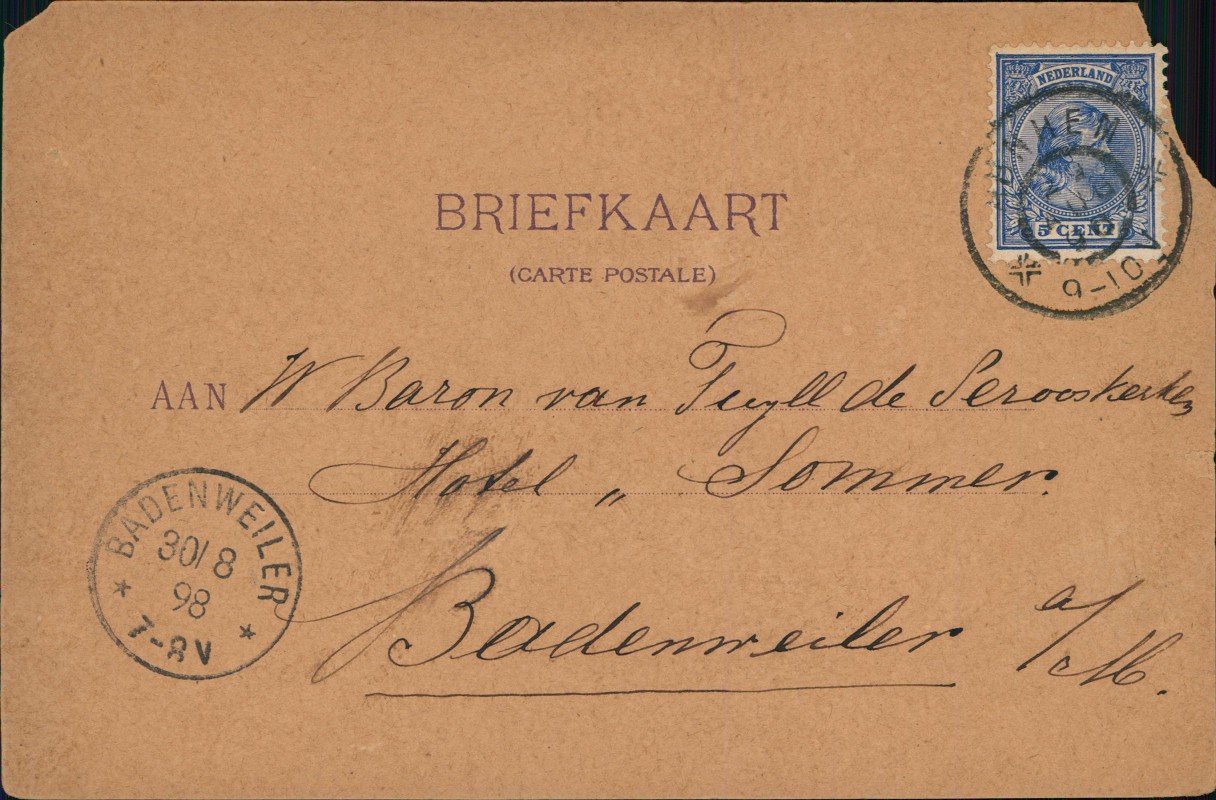 NEDERLAND
5 CENT
9-10
BRIEFKAART
(CARTE POSTALE)
AAN W Baron van Tuyll de Serooskerken
Hotel „ Sommer.
Badenweiler a/M.
BADENWEILER
30/8
98
7-8V